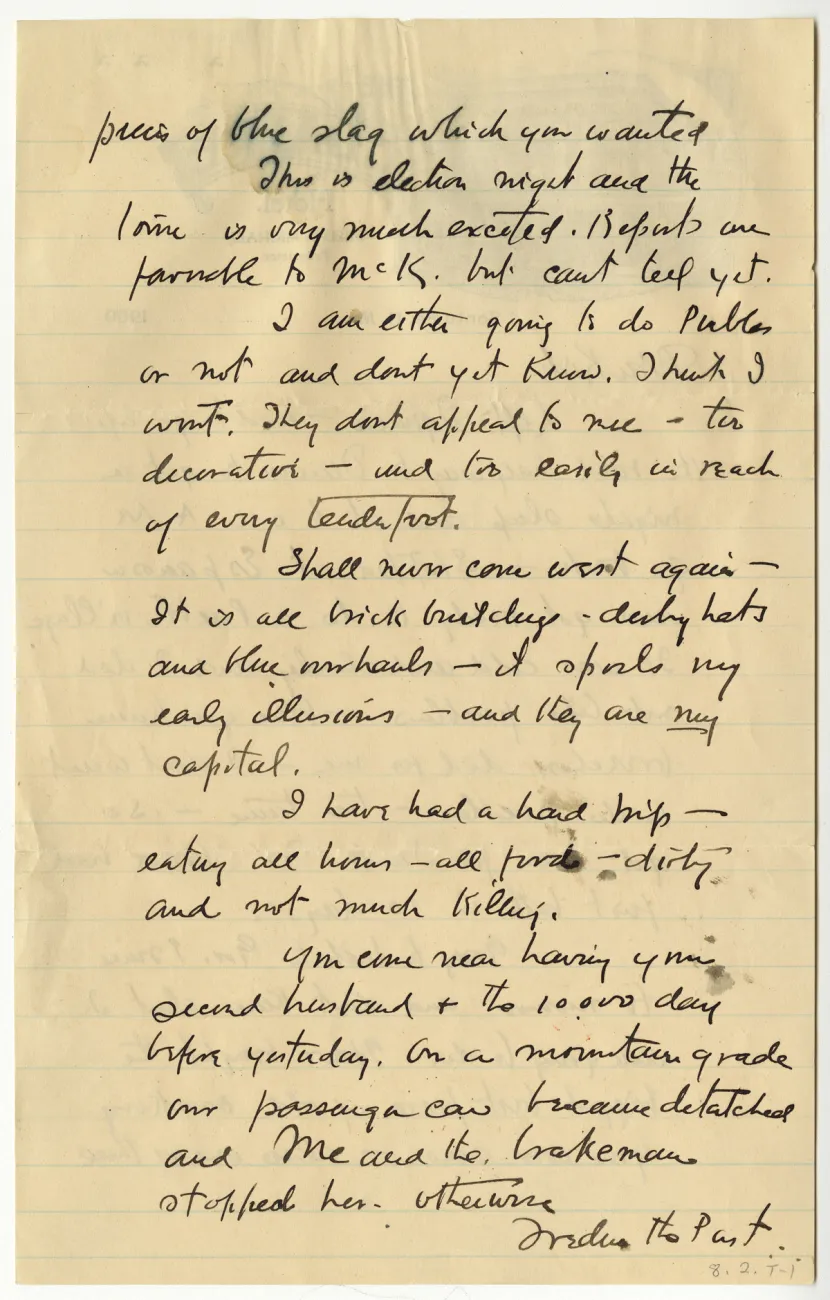 pieces of blue slag which you wanted
This is election night and the
town is very much excited. Reports are
favorable to McK. but cant tell yet.
I am either going to do Pueblos
or not and dont yet know. I think I
wont. They dont appeal to me - too
decorative - and too easily in reach
of every tenderfoot.
Shall never come west again -
It is all brick buildings - derby hats
and blue overhauls - it spoils my
early illusions - and they are my
capital.
I have had a hard trip -
eating all hours - all food - dirty
and not much killing.
You come near having your
second husband + the 10.000 day
before yesterday. On a mountain grade
our passenger car became detatched
and Me and the brakeman
stopped her - otherwise
Frederic the Past.
8. 2. T-1